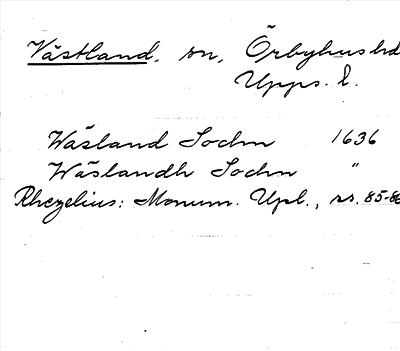 Västland, sn, Örbyhus hd
Upps. l.
Wäsland Sochn 1636
Wäslandh Sochn "
Rhezelius: Monum. Upl., ss. 85-86